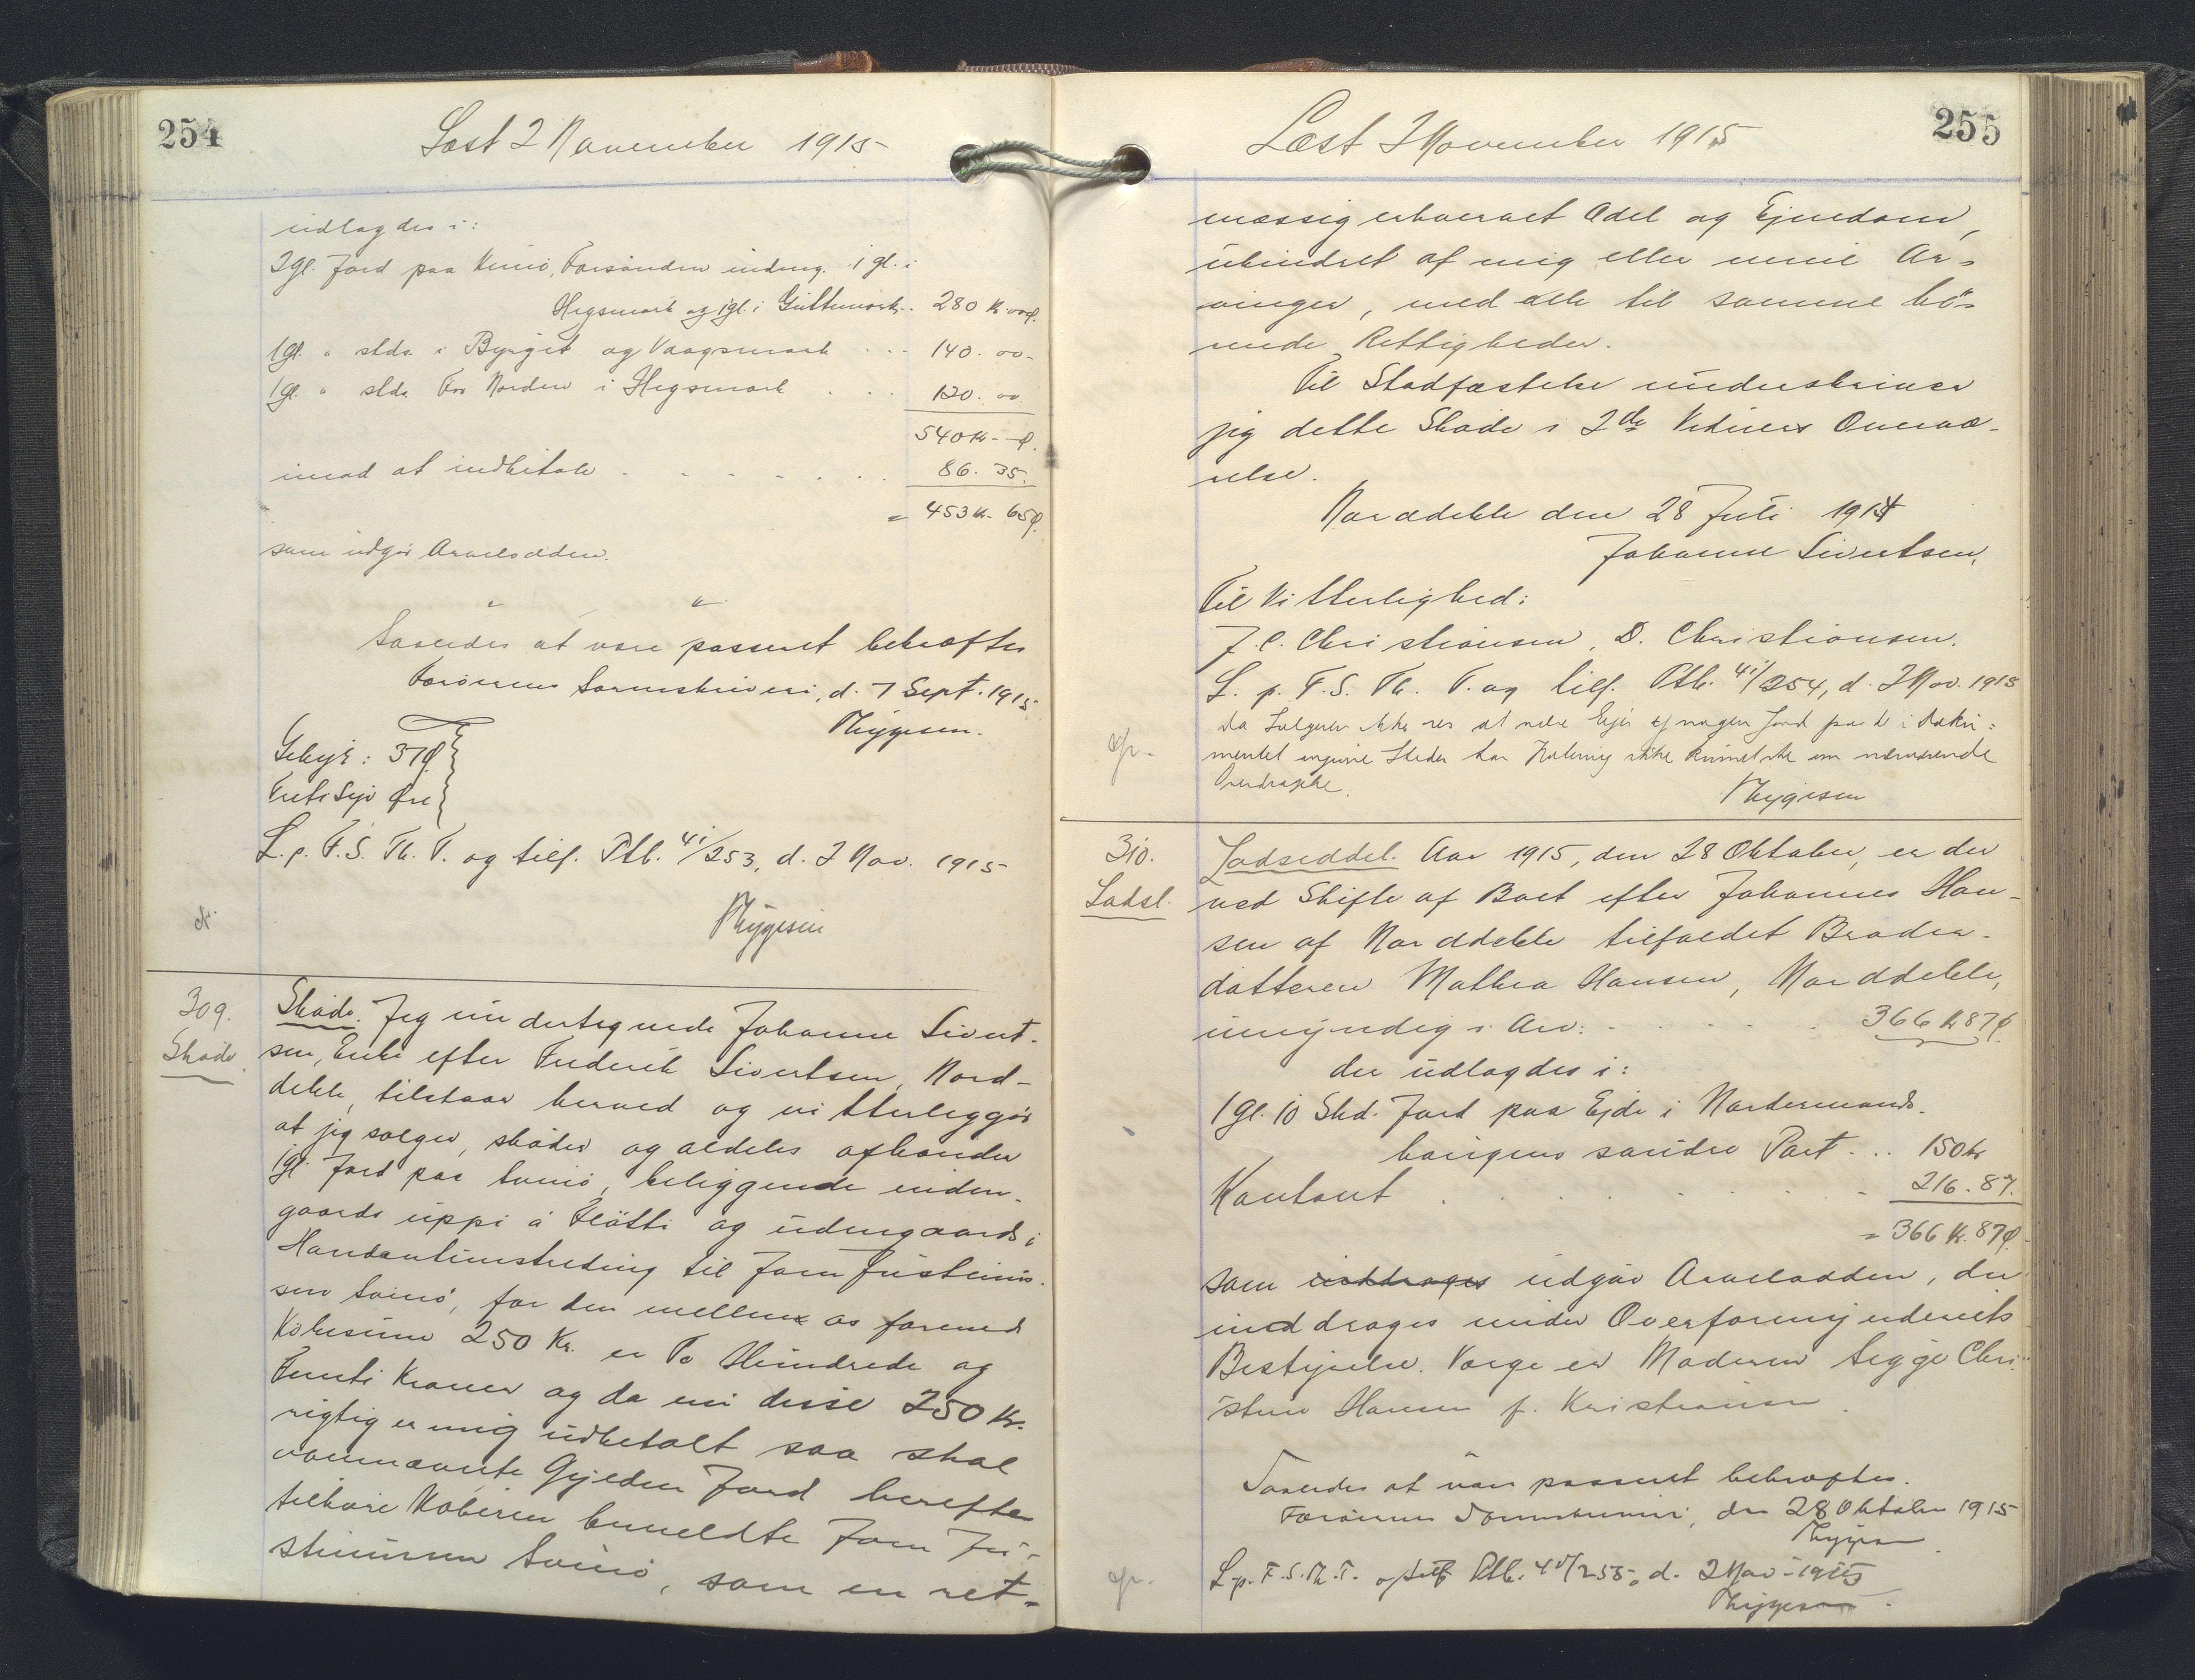 254
Læst 2 November 1915
udlagdes i:
2 gl. Jord paa Kunö, Forsunden indeng. 1 gl. i
Hegsmark og 1 gl. i Gultemark.. 280 Kr. 00 Ø.
1 gl. " stds. i Byrgit og Vaagsmark . . . 140. 00 -
1 gl. " stds. For Norden i Hegsmark . . . 120. 00
540 Kr - Ø.
imod at indbetale . - - - . . . 86. 35.
= 453 Kr. 65 Ø.
som udgör Arvelodden.
" "
Saaledes at være passeret bekræftes
Færøernes Sorenskriveri, d. 7 Sept. 1915
Thygesen.
Gebyr: 37 Ø
Treti Syv Øre
L. p. F. S. Th. V. og tilf. Ptb. 41/253, d. 2 Nov. 1915
Thygesen
309.
Skøde.
Skøde. Jeg undertegnede Johanne Sivert-
sen, Enke efter Frederik Sivertsen, Nord-
debble, tilstaar herved og vitterliggör
at jeg sælger, skøder og aldeles afhænder
1 gl. Jord paa Svinö, beliggende inden-
gaards uppi á Fløtti og udengaards i
Handantimstreding til Joen Justinus-
sen Svinö, for den mellem os forened
Købesum 250 Kr. er To Hundrede og
Femti Kroner og da nu disse 250 Kr.
rigtig er mig udbetalt saa skal
ovennævnte Gylden Jord herefter
tilhøre Køberen bemeldte Joen Ju-
stinussen Svinö, som en ret-
255
Læst 2 November 1915
mæssig erhvervet Odel og Ejendom,
uhindret af mig eller mine Ar-
vinger, med alle til samme hö-
rende Rettigheder.
Til Stadfæstelse underskriver
jeg dette Skøde i 2de Vidners Overvæ-
relse.
Norddebble den 28 Juli 1914
Johanne Sivertsen,
Til Vitterlighed:
J. C. Christiansen, D. Christiansen.
L. p. F. S. Th. V. og tilf. Ptb. 41/254, d. 2 Nov. 1915
Da Sælgeren ikke ses at være Ejer af nogen Jord paa de i Doku-
mentet angivne Steder har Notering ikke kunnet ske om nærværende
Overdragelse.
Thygesen
310.
Lodsl.
Lodseddel. Aar 1915, den 28 Oktober, er der
ved Skifte af Boet efter Johannes Han-
sen af Norddebble tilfaldet Broder-
datteren Mathea Hansen, Norddebble,
umyndig i Arv: . . . . . 366 Kr 87 Ø
der udlagdes i:
1 gl. 10 Skd. Jord paa Ejde i Nordermands-
haugens søndre Part . . . 150 Kr
Kontant . . . . . . . 216. 87.
= 366 Kr. 87 Ø.
som inddrages udgør Arvelodden, der
inddrages under Overformynderiets
Bestyrelse. Værge er Moderen Sigge Chri-
stine Hansen f. Kristiansen.
"
Saaledes at være passeret bekræftes.
Færøernes Sorenskriveri, den 28 Oktober 1915
Thygesen
L. p. F. S. Th. V. og tilf. Ptb. 41/255, d. 2 Nov. 1915
Thygesen